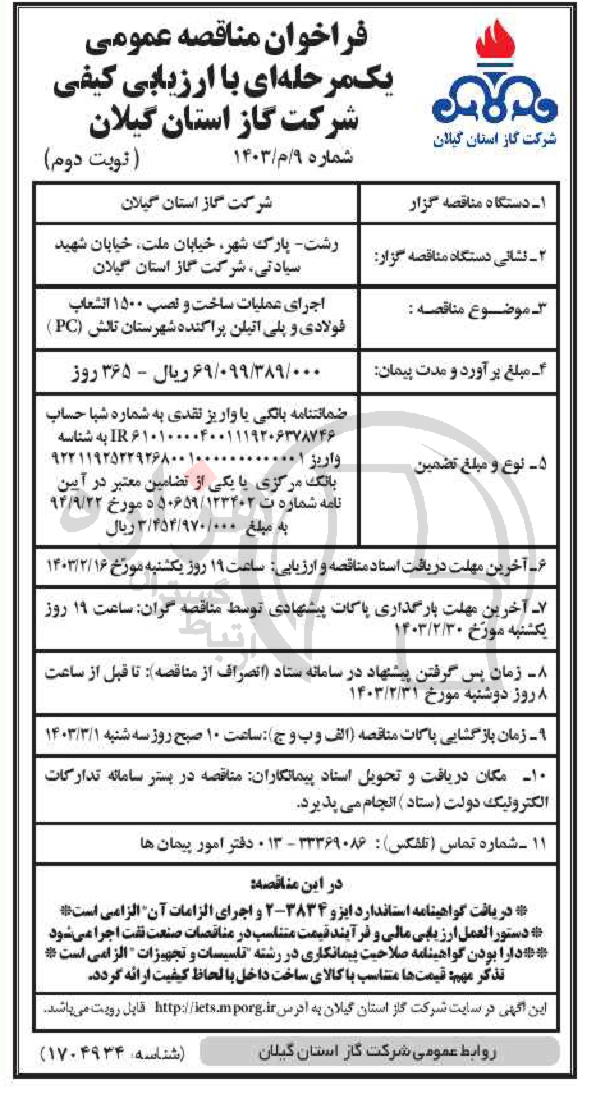 فراخوان مناقصه عمومی
یک‌مرحله‌ای با ارزیابی کیفی
شرکت گاز استان گیلان
شماره ۹/م/۱۴۰۳ (نوبت دوم)
شرکت گاز استان گیلان
۱ـ دستگاه مناقصه گزار
شرکت گاز استان گیلان
۲ـ نشانی دستگاه مناقصه گزار:
رشت- پارک شهر، خیابان ملت، خیابان شهید
سیادتی، شرکت گاز استان گیلان
۳ـ موضوع مناقصه :
اجرای عملیات ساخت و نصب ۱۵۰۰ انشعاب
فولادی و پلی اتیلن پراکنده شهرستان تالش (PC)
۴ـ مبلغ برآورد و مدت پیمان:
۶۹/۰۹۹/۳۸۹/۰۰۰ ریال - ۳۶۵ روز
۵ـ نوع و مبلغ تضمین
ضمانتنامه بانکی یا واریز نقدی به شماره شبا حساب
IR ۶۱۰۱۰۰۰۰۴۰۰۱۱۱۹۲۰۶۳۷۸۷۴۶ به شناسه
واریز
بانک مرکزی یا یکی از تضامین معتبر در آیین
نامه شماره ت ۵۰۶۵۹/۱۲۳۴۰۲ ه مورخ ۹۴/۹/۲۲
به مبلغ ۳/۴۵۴/۹۷۰/۰۰۰ ریال
۶ـ آخرین مهلت دریافت اسناد مناقصه و ارزیابی: ساعت ۱۹ روز یکشنبه مورّخ ۱۴۰۳/۲/۱۶
۷ـ آخرین مهلت بارگذاری پاکات پیشنهادی توسط مناقصه گران: ساعت ۱۹ روز
یکشنبه مورّخ ۱۴۰۳/۲/۳۰
۸ـ زمان پس گرفتن پیشنهاد در سامانه ستاد (انصراف از مناقصه): تا قبل از ساعت
۸ روز دوشنبه مورخ ۱۴۰۳/۲/۳۱
۹ـ زمان بازگشایی پاکات مناقصه (الف و ب و ج): ساعت ۱۰ صبح روز سه شنبه ۱۴۰۳/۳/۱
۱۰ـ مکان دریافت و تحویل اسناد پیمانکاران: مناقصه در بستر سامانه تدارکات
الکترونیک دولت (ستاد) انجام می پذیرد.
۱۱ ـ شماره تماس (تلفکس) : ۳۳۳۶۹۰۸۶ - ۰۱۳ دفتر امور پیمان ها
در این مناقصه:
* دریافت گواهینامه استاندارد ایزو ۳۸۳۴-۲ و اجرای الزامات آن* الزامی است*
* دستورالعمل ارزیابی مالی و فرآیند قیمت متناسب در مناقصات صنعت نفت اجرا می‌شود
**دارا بودن گواهینامه صلاحیت پیمانکاری در رشته "تاسیسات و تجهیزات" الزامی است *
تذکر مهم: قیمت‌ها متناسب با کالای ساخت داخل با لحاظ کیفیت ارائه گردد.
این آگهی در سایت شرکت گاز استان گیلان به آدرس http://iets.mporg.ir قابل رویت می‌باشد.
روابط عمومی شرکت گاز استان گیلان
(شناسه: ۱۷۰۴۹۳۴)
هزاره
گستران
ارتباط